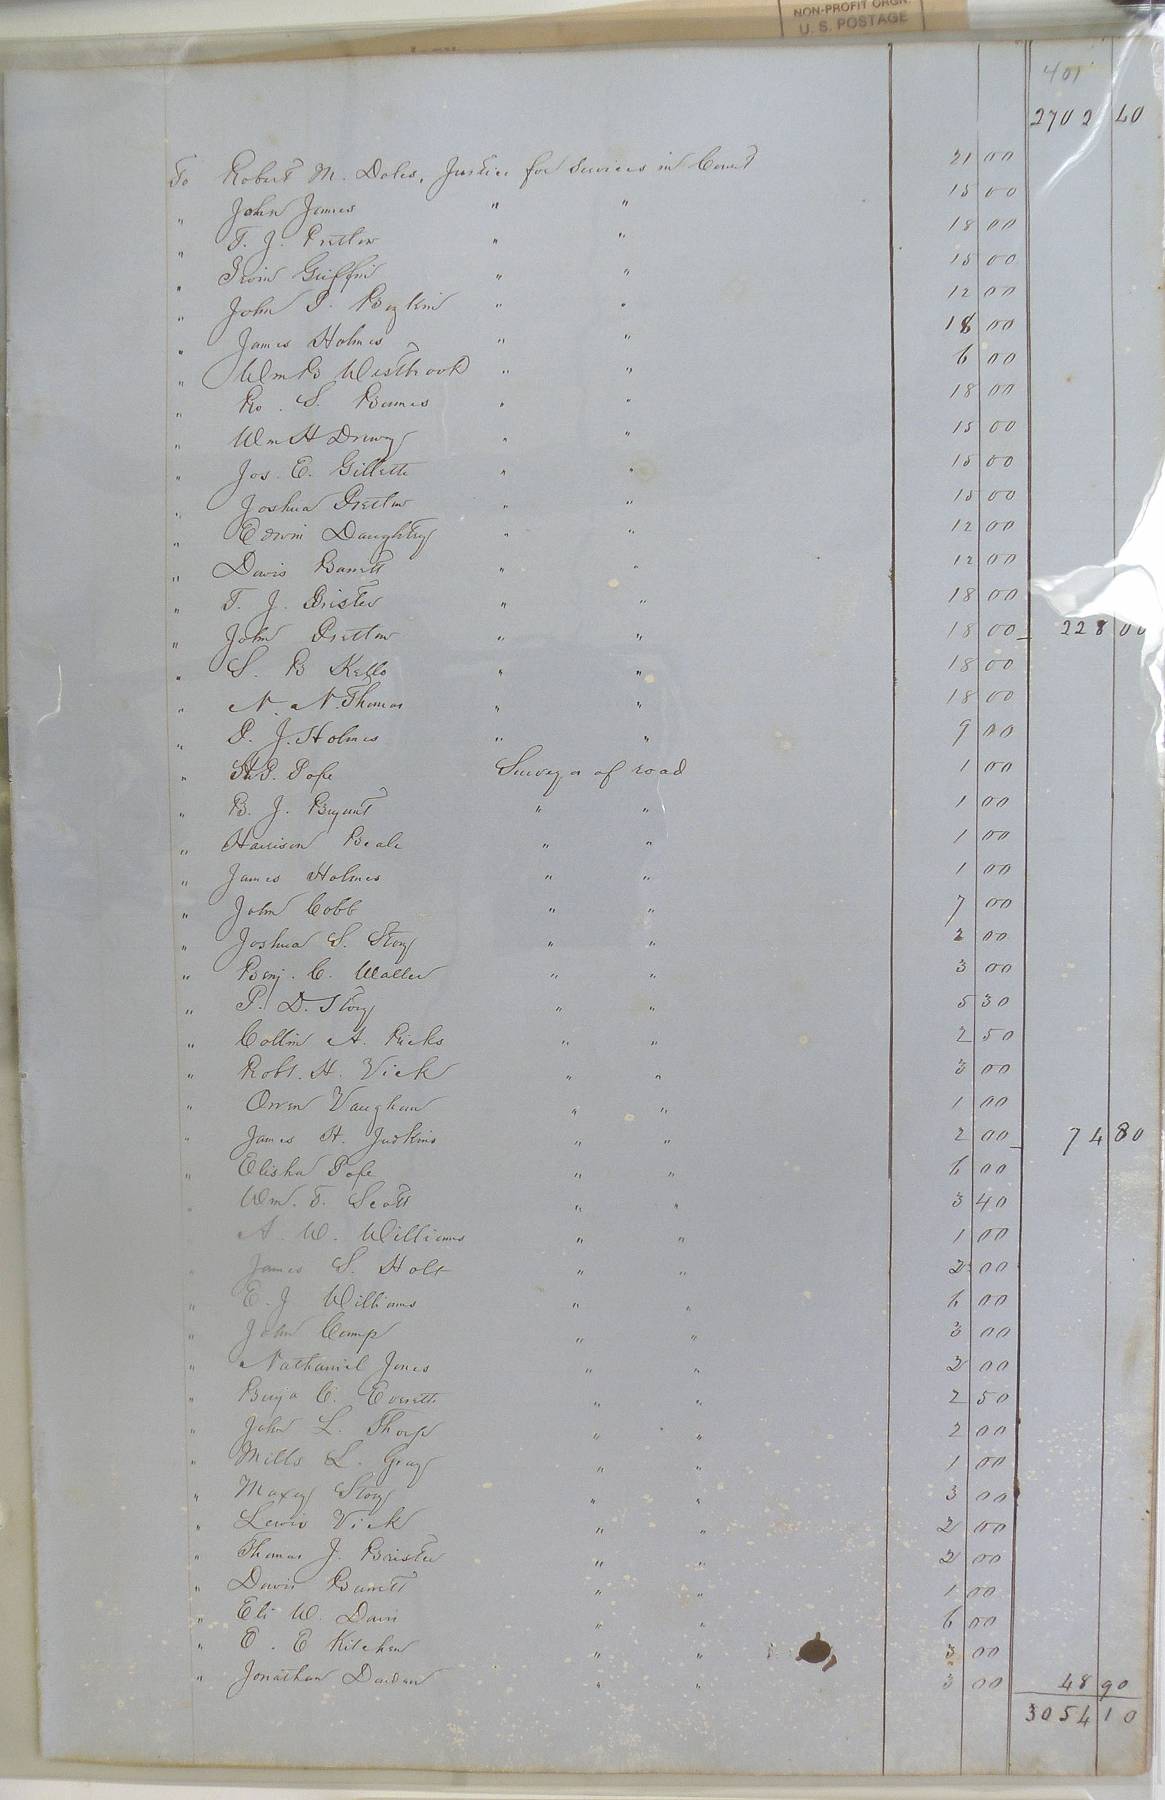 NON-PROFIT ORGN.
U. S. POSTAGE
401
2702 40
To Robert M. Doles, Justice for Services in Court 21 00
" John James " " 15 00
" T. J. Pretlow " " 18 00
" Irvin Griffin " " 15 00
" John P. Boykin " " 12 00
" James Holmes " " 18 00
" Wm B Westbrook " " 6 00
" Ro. S. Barnes " " 18 00
" Wm H Drewry " " 15 00
" Jos. E. Gillette " " 15 00
" Joshua Pretlow " " 15 00
" Edwin Daughtry " " 12 00
" Davis Barrett " " 12 00
" T. J. Brister " " 18 00
" John Pretlow " " 18 00 228 00
" S. B Kello " " 18 00
" N. N. Thomas " " 18 00
" P. J. Holmes " " 9 00
" Pope Surveyor of road 1 00
" B. J. Bryant " " 1 00
" Harrison Beale " " 1 00
" James Holmes " " 1 00
" John Cobb " " 7 00
" Joshua S. Story " " 2 00
" Benj. C. Waller " " 3 00
" P. D. Story " " 5 30
" Collin A. Ricks " " 2 50
" Robt. H. Vick " " 3 00
" Orren Vaughan " " 1 00
" James H. Judkins " " 2 00 74 80
" Elisha Pope " " 6 00
" Wm. T. Scott " " 3 40
A. W. Williams " " 1 00
" James S. Holt " " 2 00
" E. J Williams " " 6 00
" John Camp " " 3 00
" Nathaniel Jones " " 2 00
" Benja C. Everette " " 2 50
" John L. Thorp " " 2 00
" Mills L. Gray " " 1 00
" Maxey Story " " 3 00
" Lewis Vick " " 2 00
" Thomas J. Brister " " 2 00
" Davis Barrett " " 1 00
" Eli W. Davis " " 6 00
" O. E Kitchen " " 3 00
" Jonathan Darden " " 3 00 48 90
3054 10